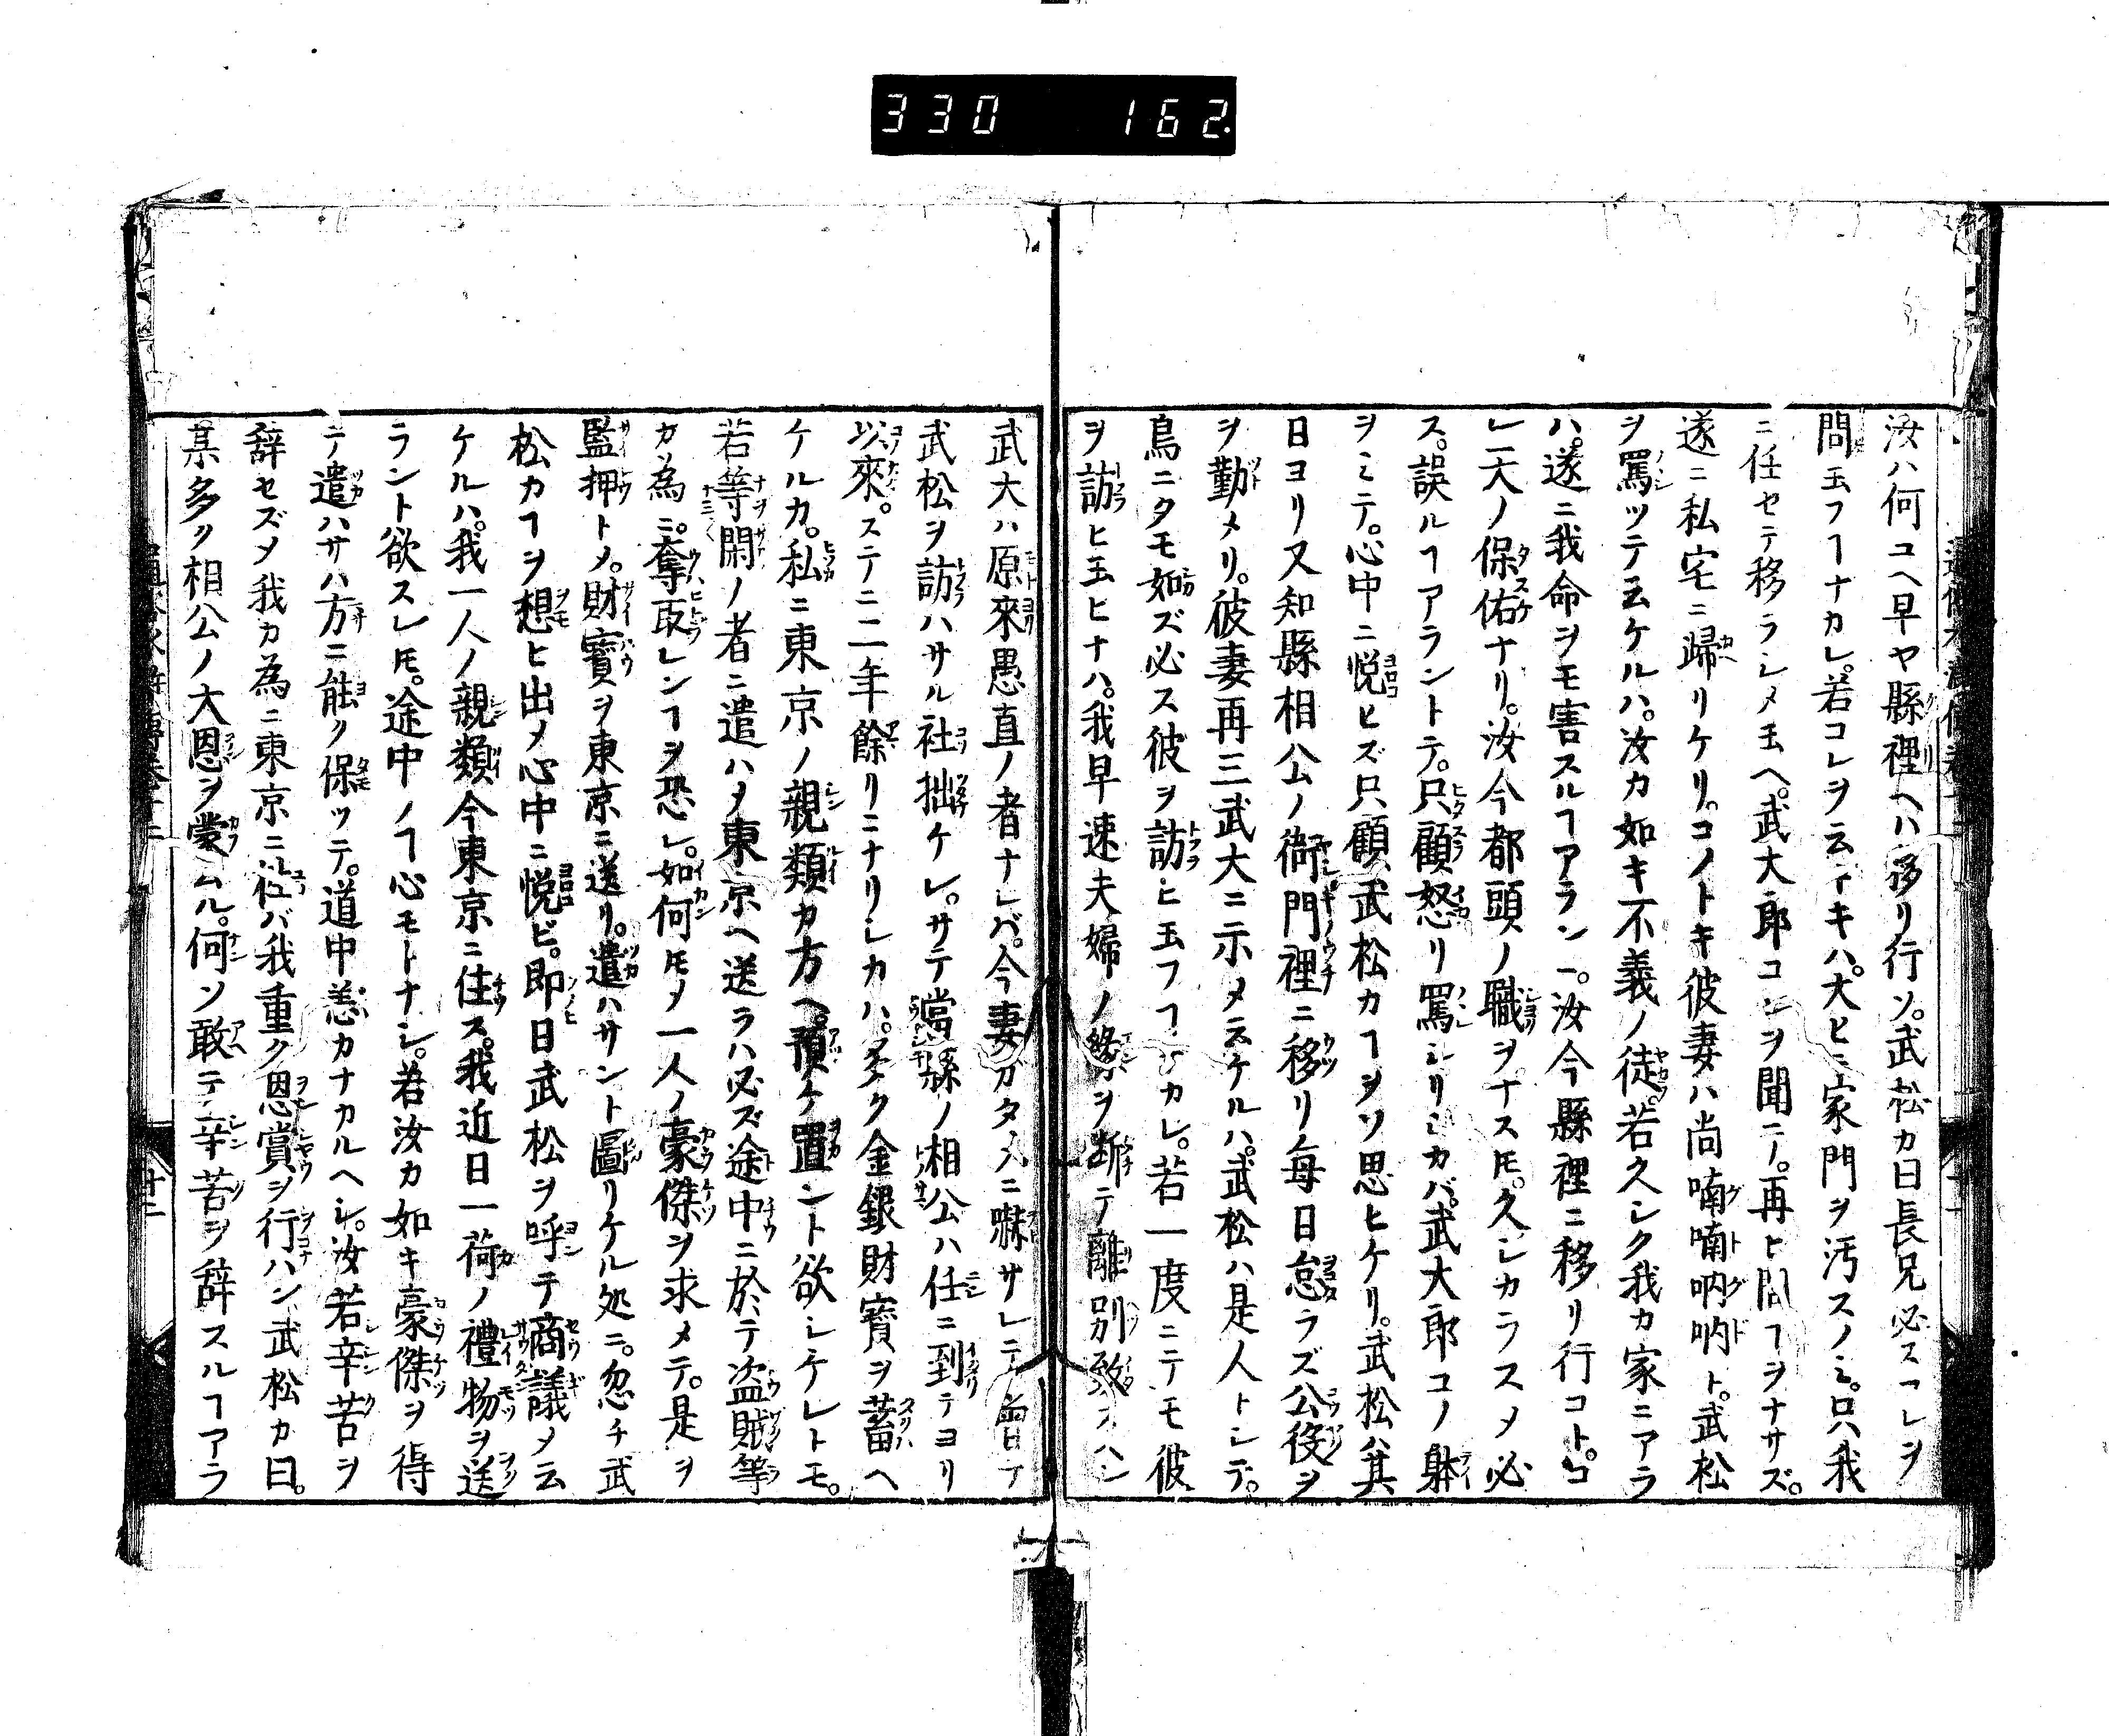 330 162
汝ハ何コヘ早ヤ縣裡ヘハ移リ行ソ。武松カ曰長兄必スコレヲ
問玉フヿナカレ。若コレヲ云イキハ。大ヒニ家門ヲ汚スノミ。只我
ニ任セテ移ラシメ玉ヘ。武大郎コレヲ聞テ。再ヒ問ヿヲナサズ。
遂ニ私宅ニ歸リケリ。コノトキ彼妻ハ尚喃喃吶吶ト。武松
ヲ罵ッテ云ケルハ。汝カ如キ不義ノ徒。若久シク我カ家ニアラ
ハ。遂ニ我命ヲモ害スルヿアラン。汝今縣裡ニ移リ行コト。コ
レ天ノ保佑ナリ。汝今都頭ノ職ヲナストモ。久シカラスメ必
ス。誤ルヿアラントテ。只顧怒リ罵シリシカバ。武大郎コノ躰
ヲミテ。心中ニ悦ヒズ只顧武松カヿヲソ思ヒケリ。武松ハ其
日ヨリ又知縣相公ノ衙門裡ニ移リ毎日怠ラズ公役ヲ
ヲ勤メリ。彼妻再三武大ニ示メ云ケルハ。武松ハ是人トシテ。
鳥ニタモ如ズ必ス彼ヲ訪ヒ玉フヿナカレ。若一度ニテモ彼
ヲ訪ヒ玉ヒナハ。我早速夫婦ノ縁ヲ断テ離別致スハン
武大ハ原來愚直ノ者ナレバ。今妻カタメニ嚇サレテ曽テ
武松ヲ訪ハサル社拙ケレ。サテ當縣ノ相公ハ任ニ到テヨリ
以來。ステニ二年餘リニナリシカハ。多ク金銀財寳ヲ蓄ヘ
ケルカ。私ニ東京ノ親類カ方ヘ。預ケ置ント欲シケレトモ。
若等閑ノ者ニ遣ハメ東京ヘ送ラハ必ズ途中ニ於テ盗賊等
カ為ニ。奪取レンヿヲ恐レ。如何トモメ一人ノ豪傑ヲ求メテ。是ヲ
監押トメ。財寳ヲ東京ニ送リ。遣ハサント圖リケル処ニ。忽チ武
松カヿヲ想ヒ出メ心中ニ悦ビ。即日武松ヲ呼テ商議メ云
ケルハ。我一人ノ親類今東京ニ住ス。我近日一荷ノ禮物ヲ送
ラント欲スレトモ。途中ノヿ心モトナシ。若汝カ如キ豪傑ヲ得
テ遣ハサハ方ニ能ク保ッテ。道中恙カナカルヘシ。汝若辛苦ヲ
辞セズメ我カ為ニ東京ニ徃バ我重ク恩賞ヲ行ハン武松カ曰。
某多ク相公ノ大恩ヲ蒙ムル。何ソ敢テ辛苦ヲ辞スルヿアラ